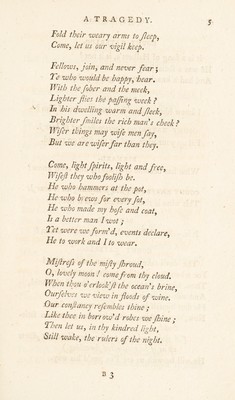 A TRAGEDY. 5
Fold their weary arms to ſleep,
Come, let us our vigil keep.
Fellows, join, and never fear;
Ye who would be happy, hear.
With the ſober and the meek,
Lighter flies the paſſing week?
In his dwelling warm and ſleek,
Brighter ſmiles the rich man's cheek?
Wiſer things may wiſe men ſay,
But we are wiſer far than they.
Come, light ſpirits, light and free,
Wiſeſt they who fooliſh be.
He who hammers at the pot,
He who brews for every ſot,
He who made my hoſe and coat,
Is a better man I wot;
Yet were we form'd, events declare,
He to work and I to wear.
Miſtreſs of the miſty ſhroud,
O, lovely moon! come from thy cloud.
When thou o'erlook'ſt the ocean's brine,
Ourſelves we view in floods of wine.
Our conſtancy reſembles thine;
Like thee in borrow'd robes we ſhine;
Then let us, in thy kindred light,
Still wake, the rulers of the night.
B 3